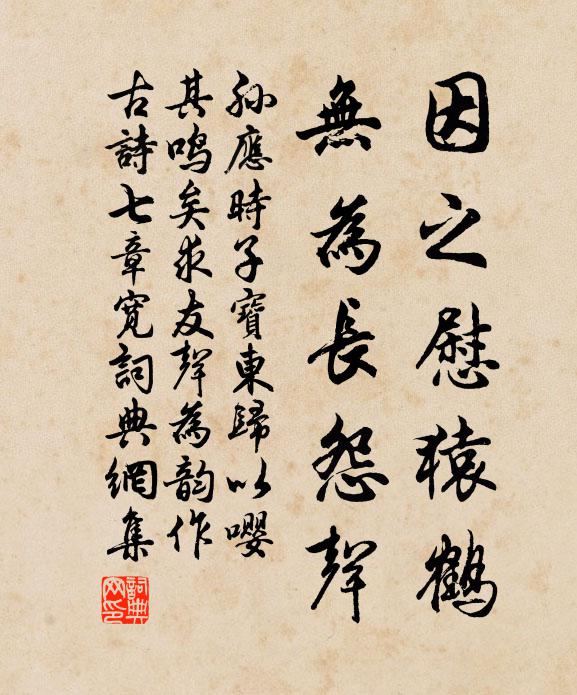 因之慰猿鶴
無為長怨聲
孙應時子寶東歸以嚶
其鳴矣求友聲為韵作
古詩七章寬詞典網集
詞典網印